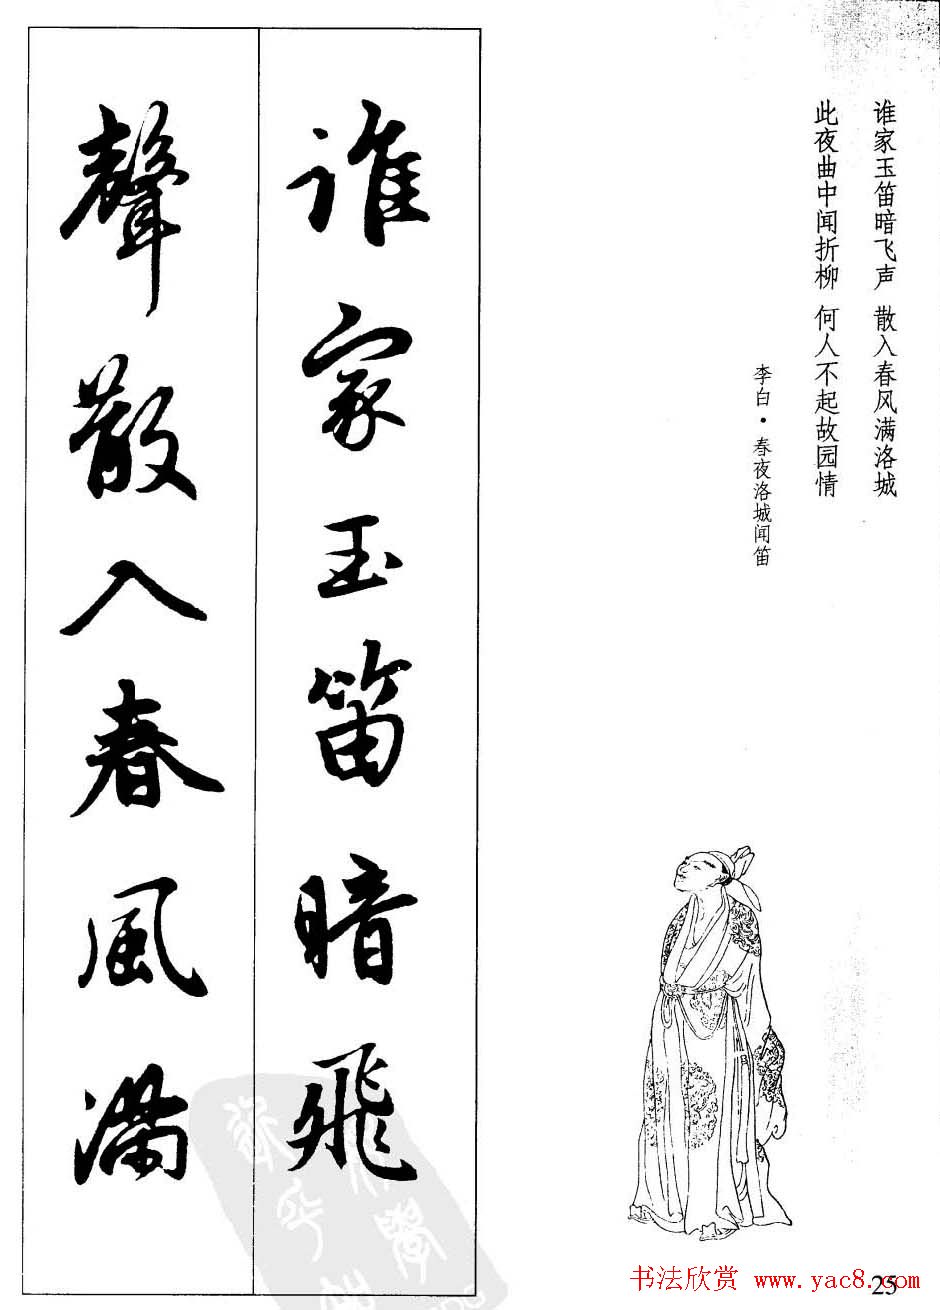 谁家玉笛暗飞声 散入春风满洛城
此夜曲中闻折柳 何人不起故园情
李白·春夜洛城闻笛
谁家玉笛暗飛
聲散入春風滿
书法欣赏 www.yac8.com
25